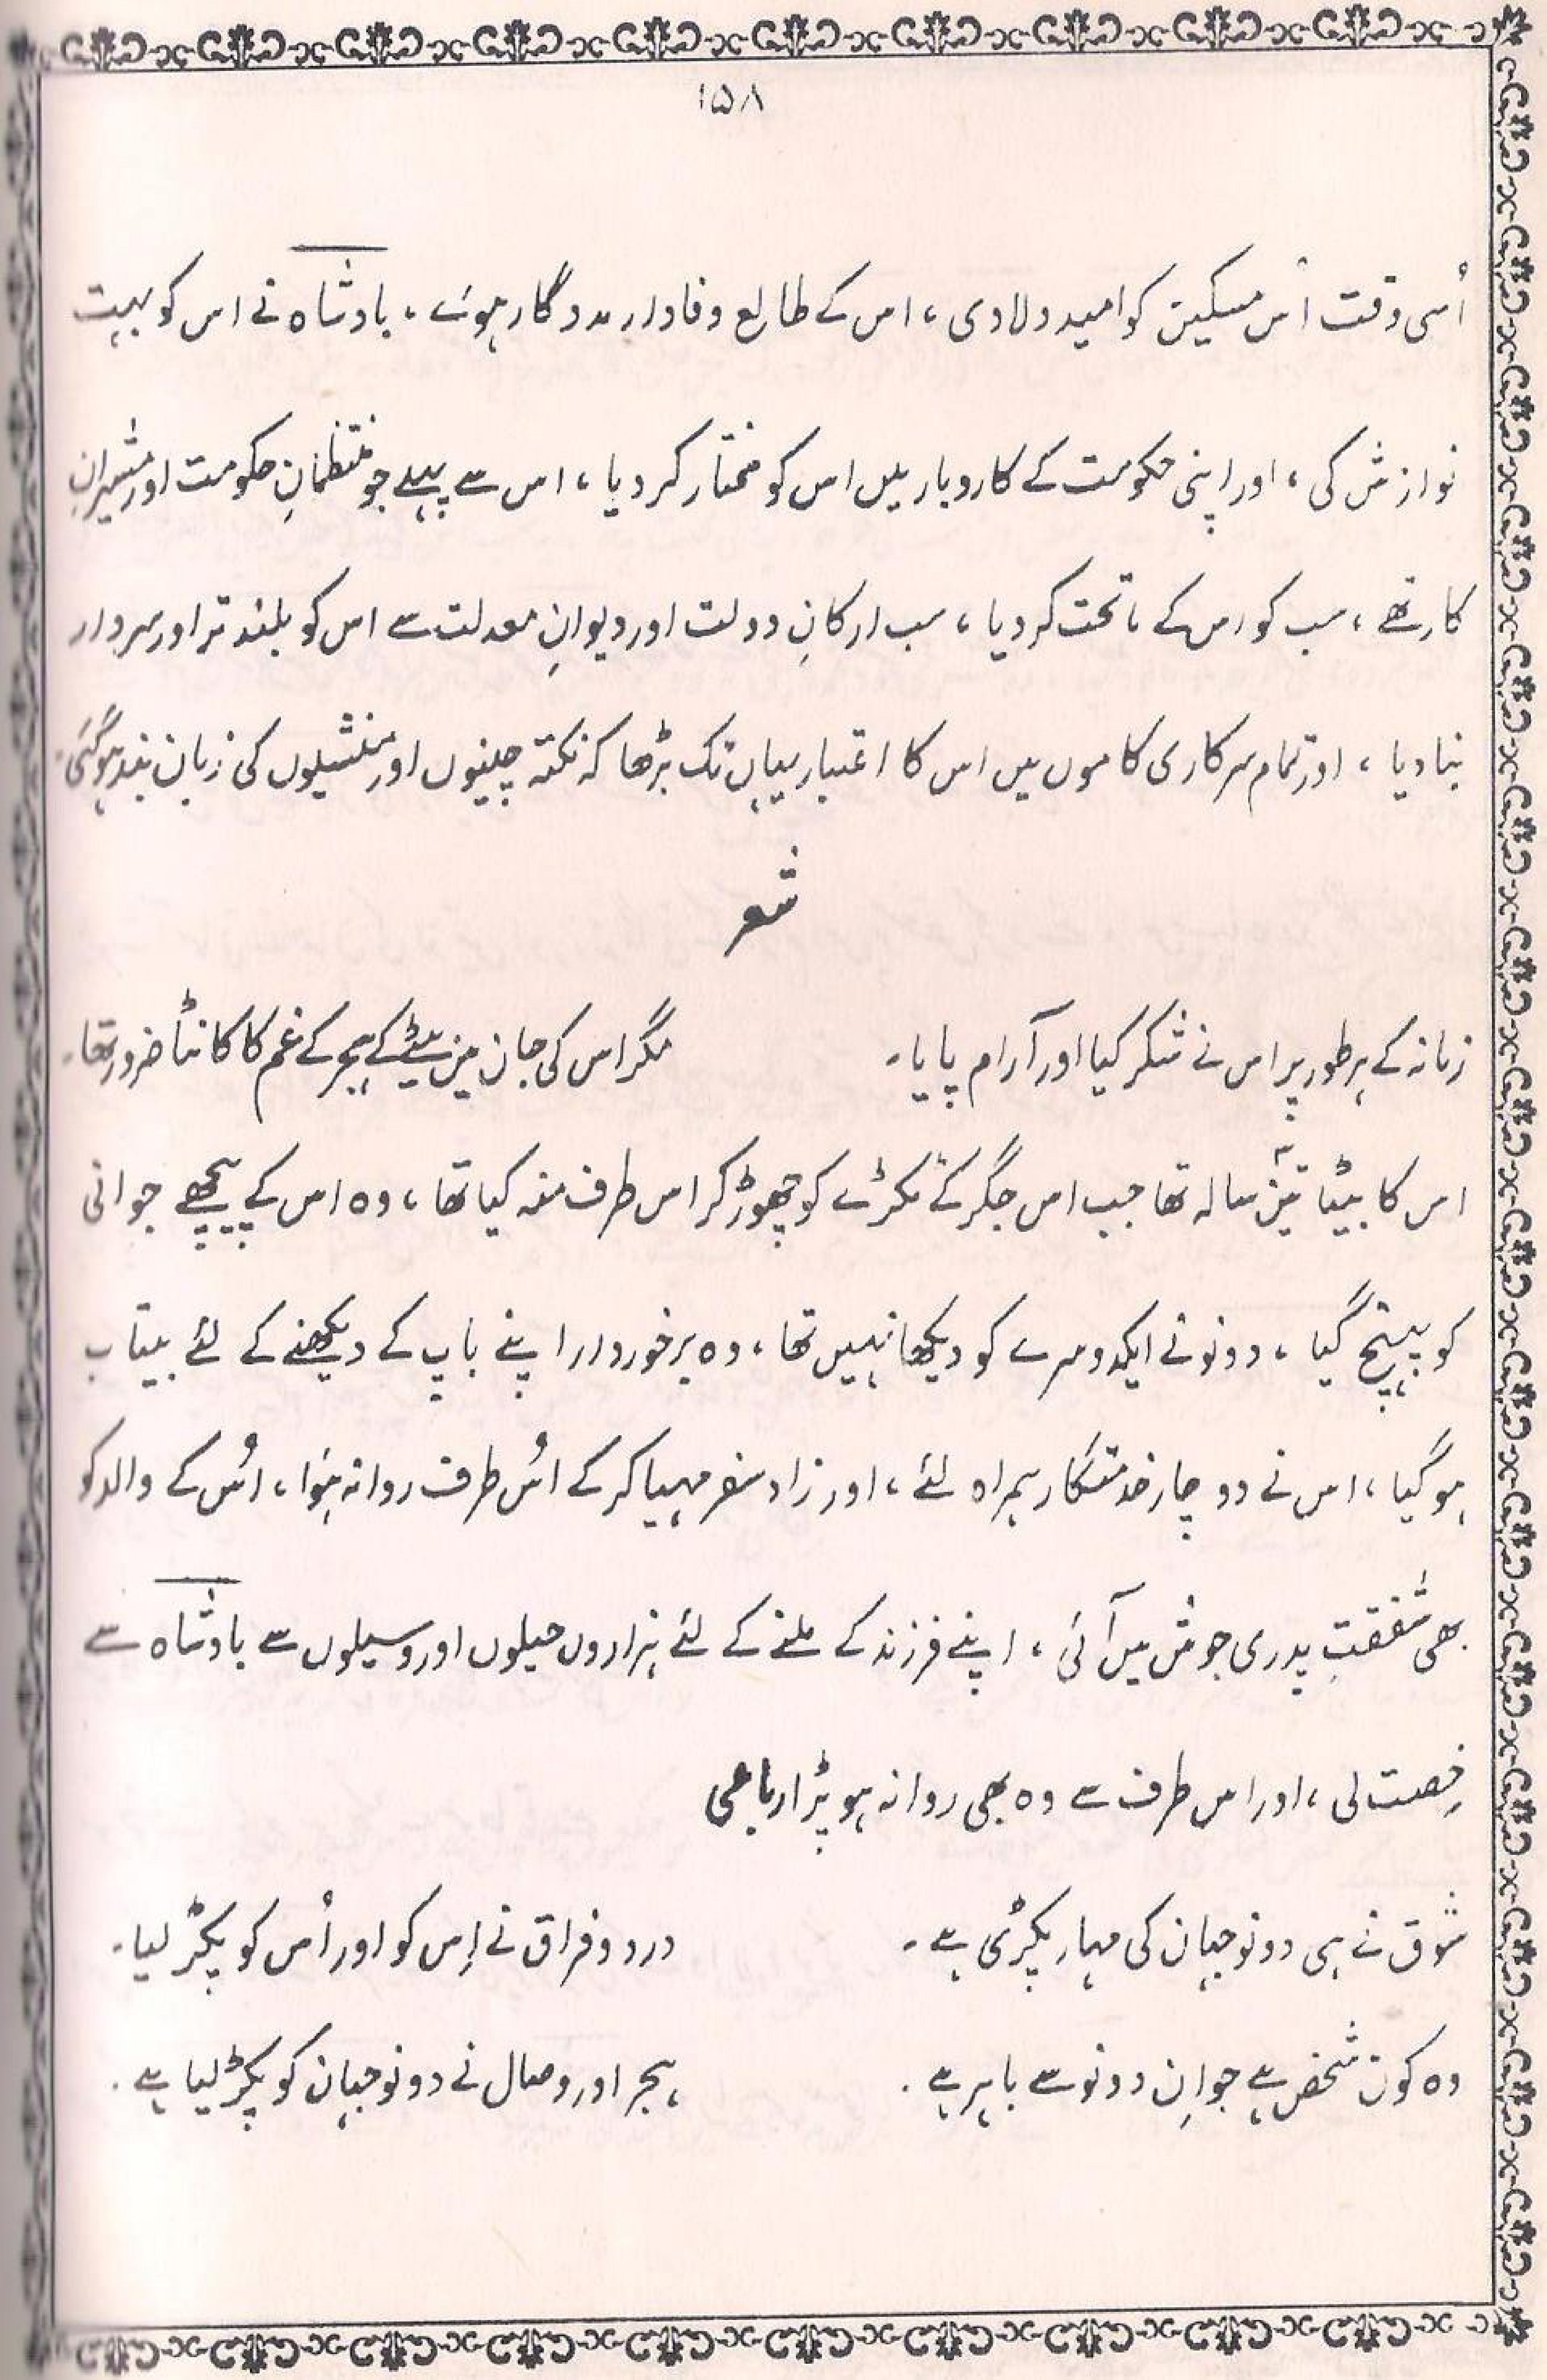 ۱۵۸
اُسی وقت اُس مسکین کو امید دلا دی، اس کے طالع وفادار مددگار ہوئے، بادشاہ نے اس کو بہت
نوازش کی، اور اپنی حکومت کے کاروبار میں اس کو مختار کر دیا، اس سے پہلے جو منتظمانِ حکومت اور مشیرانِ
کار تھے، سب کو اس کے ماتحت کر دیا، سب ارکانِ دولت اور دیوانِ معدلت سے اس کو بلند تر اور سردار
بنا دیا، اور تمام سرکاری کاموں میں اس کا اعتبار یہاں تک بڑھا کہ نکتہ چینیوں اور منشیوں کی زبان بند ہوگئی۔
شعر
زمانہ کے ہر طور پر اس نے شکر کیا اور آرام پایا۔ مگر اس کی جان میں بیٹے کے ہجر کے غم کا کانٹا ضرور تھا۔
اس کا بیٹا تین سالہ تھا جب اس جگر کے ٹکڑے کو چھوڑ کر اس طرف منہ کیا تھا، وہ اس کے پیچھے جوانی
کو پہنچ گیا، دونو نے ایکدوسرے کو دیکھا نہیں تھا، وہ برخوردار اپنے باپ کے دیکھنے کے لئے بیتاب
ہو گیا، اس نے دو چار خدمتگار ہمراہ لئے، اور زاد سفر مہیا کر کے اُس طرف روانہ ہُوا، اُس کے والد کو
بھی شفقتِ پدری جوش میں آئی، اپنے فرزند کے ملنے کے لئے ہزاروں حیلوں اور وسیلوں سے بادشاہ سے
رخصت لی، اور اس طرف سے وہ بھی روانہ ہو پڑا رباعی
شوق نے ہی دونو جہان کی مہار پکڑی ہے۔ درد و فراق نے اِس کو اور اُس کو پکڑ لیا۔
وہ کون شخص ہے جو اِن دونو سے باہر ہے۔ ہجر اور وصال نے دونو جہان کو پکڑ لیا ہے۔